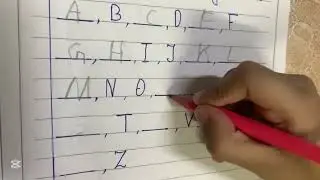 A, B, C, D, E, F
G, H, I, J, K, L
M, N, O, __
__, T, __, V
__, Z